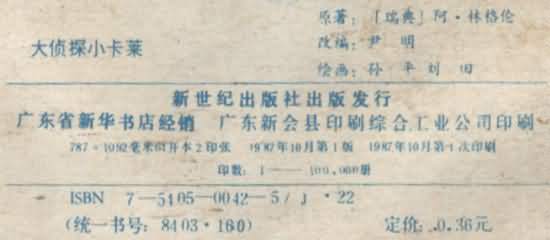 原著：〔瑞典〕阿·林格伦
大侦探小卡莱
改编：尹 明
绘画：孙 平 刘 田
新世纪出版社出版发行
广东省新华书店经销 广东新会县印刷综合工业公司印刷
787×1092毫米64开本2印张 1987年10月第1版 1987年10月第1次印刷
印数：1——100,000册
ISBN 7—5405—0042—5/J·22
(统一书号：8403·160) 定价：0.36元